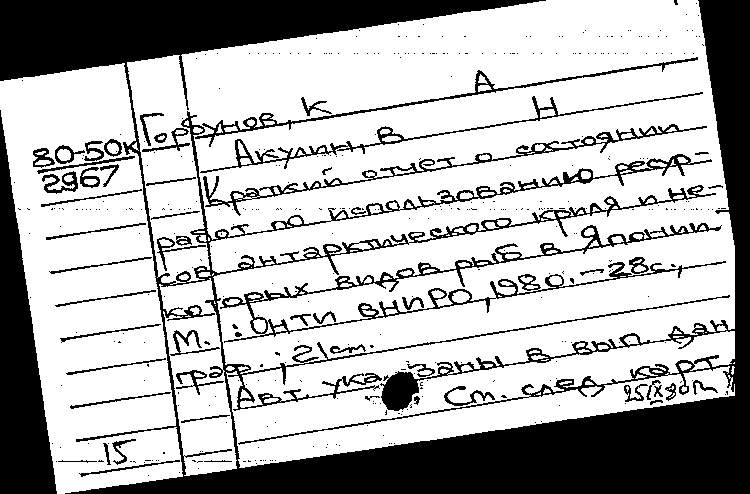 Горбунов, К А
80-50к
2967
Акулин, В Н
Краткий отчет о состоянии
работ по использованию ресур-
сов антарктического криля и не-
которых видов рыб в Японии.-
М. : ОНТИ ВНИРО, 1980.-28с.,
граф. ; 21см.
Авт. указаны в вып. дан
См. след. карт
15